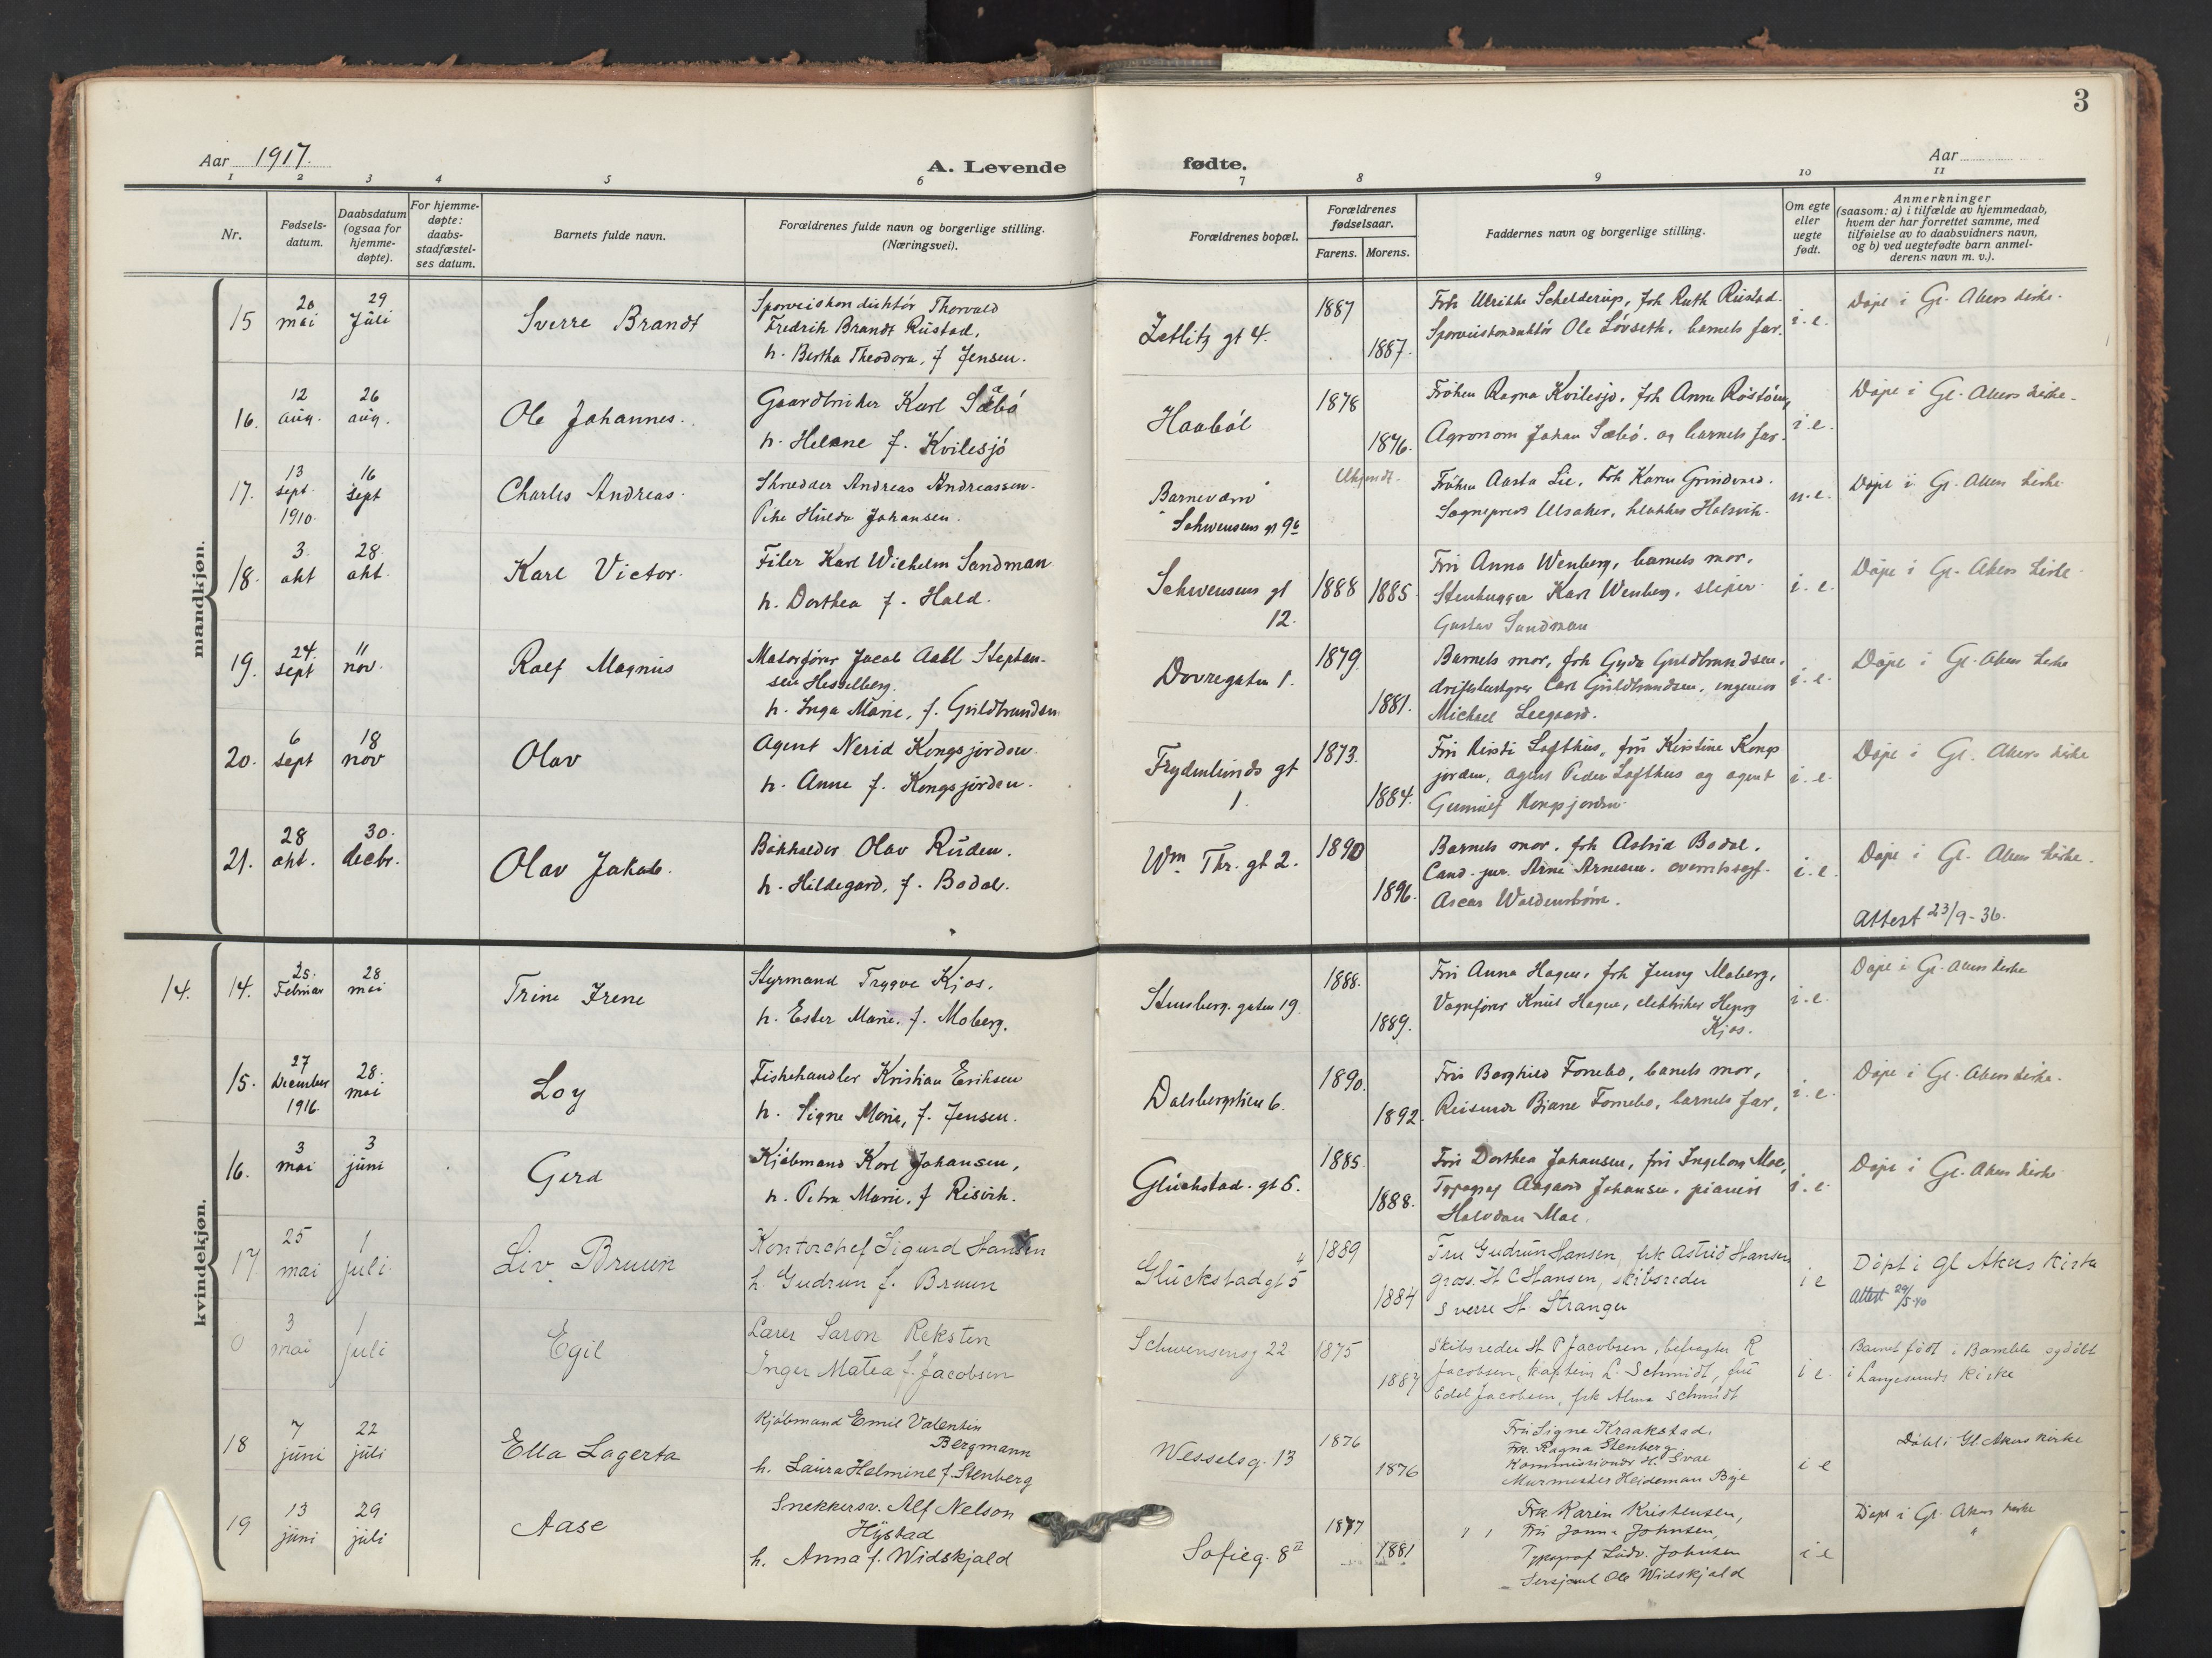 3
Aar 1917.
A. Levende fødte.
Aar
1 2 3 4 5 6 7 8 9 10 11
Nr.
Fødsels-
datum.
Daabsdatum
(ogsaa for
hjemme-
døpte).
For hjemme-
døpte:
daabs-
stadfæstel-
ses datum.
Barnets fulde navn.
Forældrenes fulde navn og borgerlige stilling.
(Næringsvei).
Forældrenes bopæl.
Forældrenes
fødselsaar.
Farens. Morens.
Faddernes navn og borgerlige stilling.
Om egte
eller
uegte
født.
Anmerkninger
(saasom: a) i tilfælde av hjemmedaab,
hvem der har forrettet samme, med
tilføielse av to daabsvidners navn,
og b) ved uegtefødte barn anmel-
derens navn m. v.).
mandkjøn.
15
20
mai
29
Juli
Sverre Brandt
Sporveiskonduktør Thorvald
Fredrik Brandt Rustad,
h. Bertha Theodora, f Jensen.
Zetlitz gt 4.
1887
1887.
Frk Ulrikke Schelderup, frk Ruth Rustad.
Sporveiskonduktør Ole Løvseth, barnets far.
i. e.
Døpt i Gl. Akers kirke.
16.
12
aug.
26
aug.
Ole Johannes.
Gaardbruker Karl Sæbø
h. Helene f. Kvilesjø
Haabøl
1878
1876.
Frøken Ragna Kvilesjø, frk Anna
Agronom Johan Sæbø. og barnets far.
i e.
Døpt i Gl. Akers kirke.
17.
13
sept.
1910.
16
sept
Charles Andreas.
Skrædder Andreas Andreassen.
Pike Hulda Johansen.
Barnevern
Schwensens gt 9b
Ukjendt.
Frøken Aasta Lie, frk Karen
Sogneprest Ulsaker, klokker Halsvik.
u. e.
Døpt i Gl. Akers kirke
18.
3.
okt
28.
okt.
Karl Victor.
Filer Karl Wilhelm Sandman
h. Dorthea f. Hald.
Schwensens gt
12.
1888 1885.
Fru Anna Wenberg, barnets mor.
Stenhugger Karl Wenberg, sliper
Gustav Sandman
i. e.
Døpt i Gl. Akers kirke
19.
24.
sept
11
nov.
Ralf Magnus
Motorfører Jacob Aall Stephan-
sen Hesselberg.
h. Inga Marie, f. Guldbrandsen
Dovregaten 1.
1879.
1881.
Barnets mor, frk Gyda Guldbrandsen.
driftsbestyrer Carl Guldbrandsen, ingeniør
Michael Leegaard.
i. e.
Døpt i Gl. Akers kirke
20.
6
sept
18
nov
Olav
Agent Nerid Kongsjorden.
h. Anne f. Kongsjorden.
Frydenlunds gt
1.
1873.
1884.
Fru Kirsti Lofthus, fru Kirstine Kongs
jorden, agent Peder Lofthus og agent
Gunnulf Kongsjorden.
i. e.
Døpt i Gl. Akers kirke
21.
28
okt.
30.
decbr.
Olav Jakob.
Bokholder Olav Ruden.
h. Hildegard, f. Bodal.
Wm Thr. gt 2.
1890
1896.
Barnets mor. frk Astrid Bodal.
Cand. jur. Arne Arnesen. overretssagf.
Oscar Waldenstrøm.
i. e.
Døpt i Gl. Akers kirke.
Attest 23/9-36.
kvindekjøn.
14.
14.
25.
Februar
28
mai
Trine Irene
Styrmand Trygve Kjos.
h. Ester Marie. f. Moberg.
Stensberg. gaten 19.
1888.
1889.
Fru Anna Hagen, frk Jenny Moberg,
Vognfører Knut Hagen, elektriker Henry
Kjos.
i. e.
Døpt i Gl. Akers kirke
15.
27
December
1916.
28.
mai
Loy
Fiskehandler Kristian Eriksen
h. Signe Marie, f. Jensen.
Dalsbergstien 6.
1890.
1892.
Fru Borghild Fornebo, barnets mor,
Reisende Bjarne Fornebo, barnets far,
i. e.
Døpt i Gl. Akers kirke.
16.
3
mai
3
juni
Gerd
Kjøbmand Karl Johansen,
h. Petra Marie, f Risvik.
Glückstad. gt 5.
1885.
1888.
Fru Dorthea Johansen, fru Ingeborg Moe,
Typograf Aagaard Johansen, pianist
Halvdan Moe.
i. e.
Døpt i Gl. Akers kirke
17
25
mai
1
juli
Liv Bruun
Kontorchef Sigurd Hansen
h. Gudrun f. Bruun
Glückstad gt 5 4
1889
1884
Fru Gudrun Hansen, frk Astrid Hansen
Gross. H C Hansen, skibsreder
Sverre H. Stranger
i e
Døpt i Gl Akers Kirke
Attest 24/5 40
0
3
mai
1
juli
Egil
Lærer Saron Reksten
Inger Matea f. Jacobsen
Schwensensg 22
1875
1887
Skibsreder H P Jacobsen, befragter R
Jacobsen, kaptein L. Schmidt, fru
Edel Jacobsen, frk Alma Schmidt
i e.
Barnet født i Bamble og døbt
i Langesunds Kirke
18
7
juni
22
juli
Ella Lagerta
Kjøbmand Emil Valentin
Bergmann
h. Laura Helmine f. Stenberg
Wesselsg. 13
1876
1876
Fru Signe Kraakstad,
Frk. Ragna Stenberg,
Kommissionær H. Svae
Murmester Heideman Bye
i e
Døbt i Gl. Akers kirke
19
13
juni
29
juli
Aase
Snekkersv. Alf Nelson
Hystad
h. Anna f. Widskjald
Sofieg. 8 II
1877
1881
Frk Karin Kristensen,
Fru Janna Johnsen,
Typograf Ludv. Johnsen
Sersjant Ole Widskjald
i e
Døpt i Gl. Akers kirke